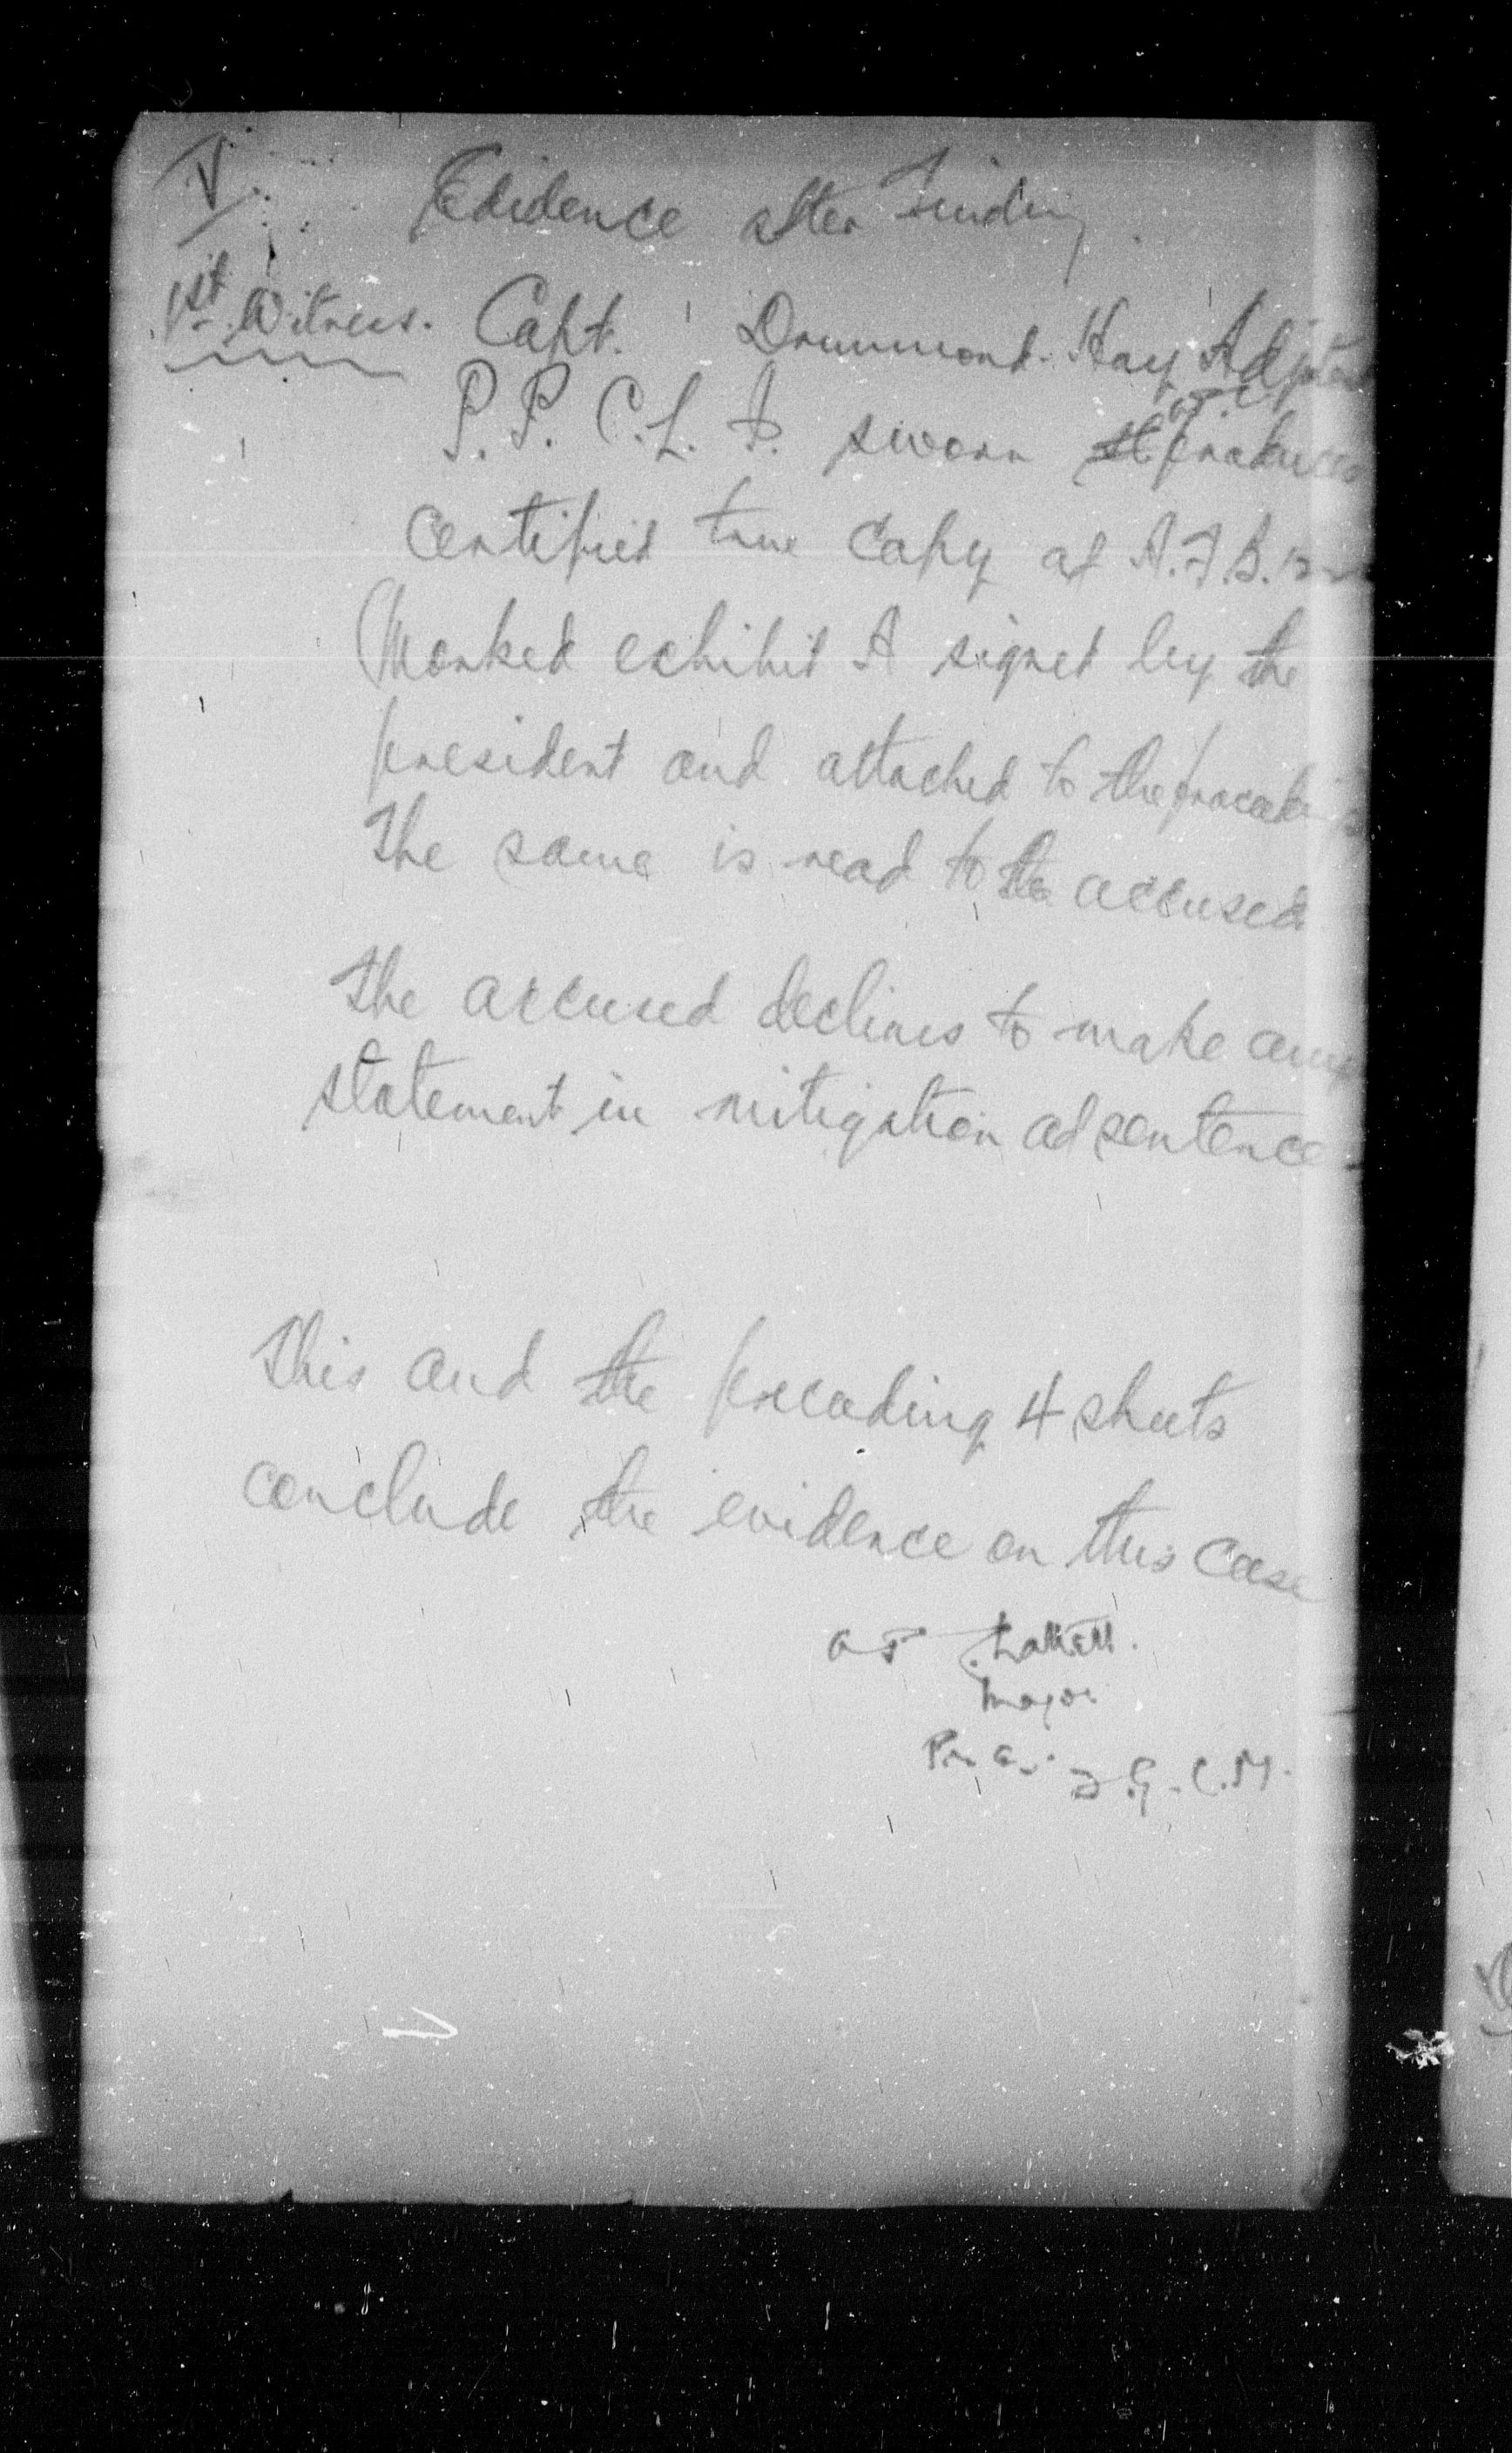 V.
Evidence after Finding
1st Witness. Capt. Drummond-Hay Adjutant
P.P.C.L.I. sworn produces
certified true copy of A.F.B.
Marked exhibit A signed by the
president and attached to the proceedings
The same is read to the accused
The accused declines to make any
statement in mitigation of sentence.
This and the preceding 4 sheets
conclude the evidence on this case
Major
F.G.C.M.